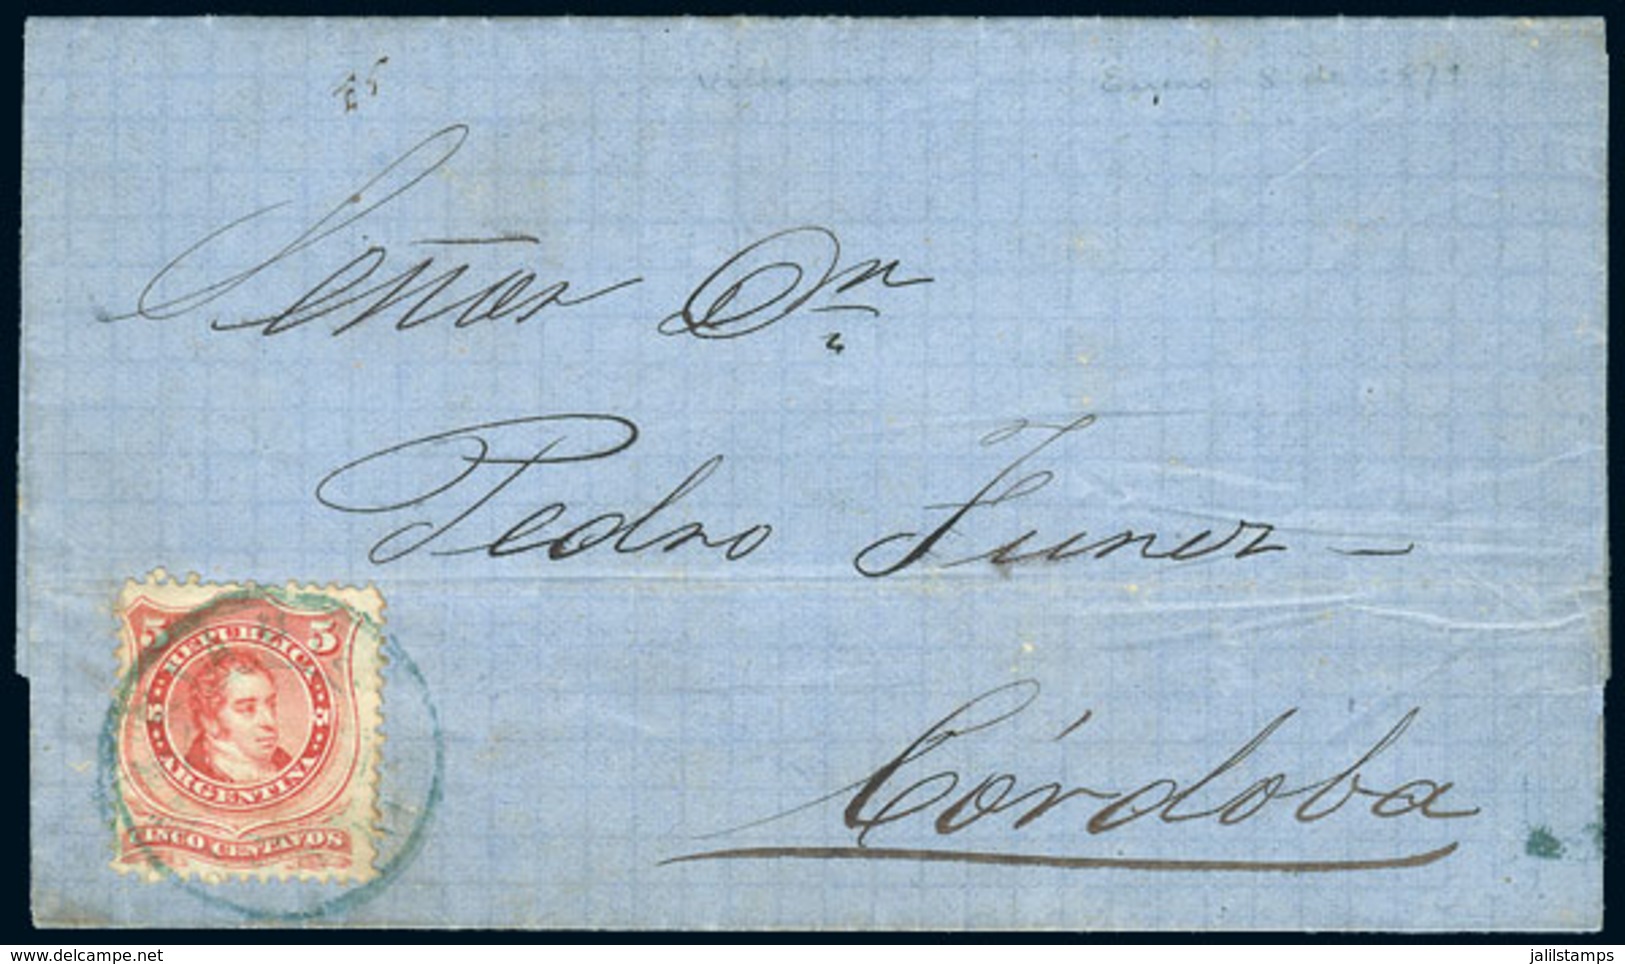 Señor Dn
Pedro Funez
Córdoba
5 5
REPUBLICA
5 5
ARGENTINA
CINCO CENTAVOS
www.delcampe.net
jalilstamps